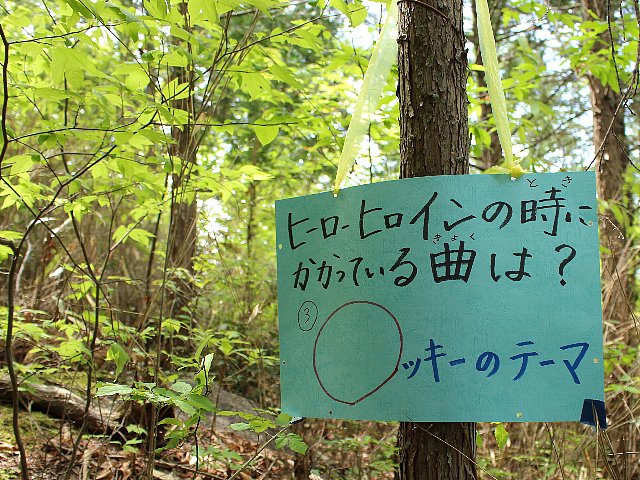 ヒーローヒロインの時に
とき
かかっている曲は？
きょく
③
◯ッキーのテーマ